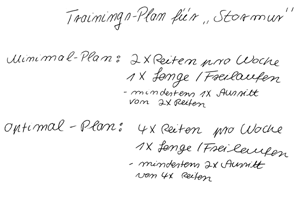 Trainings-Plan für „Stormur"
Minimal-Plan: 2x Reiten pro Woche
1x Longe / Freilaufen
- mindestens 1x Ausritt
von 2x Reiten
Optimal-Plan: 4x Reiten pro Woche
1x Longe / Freilaufen
- mindestens 2x Ausritt
von 4x Reiten